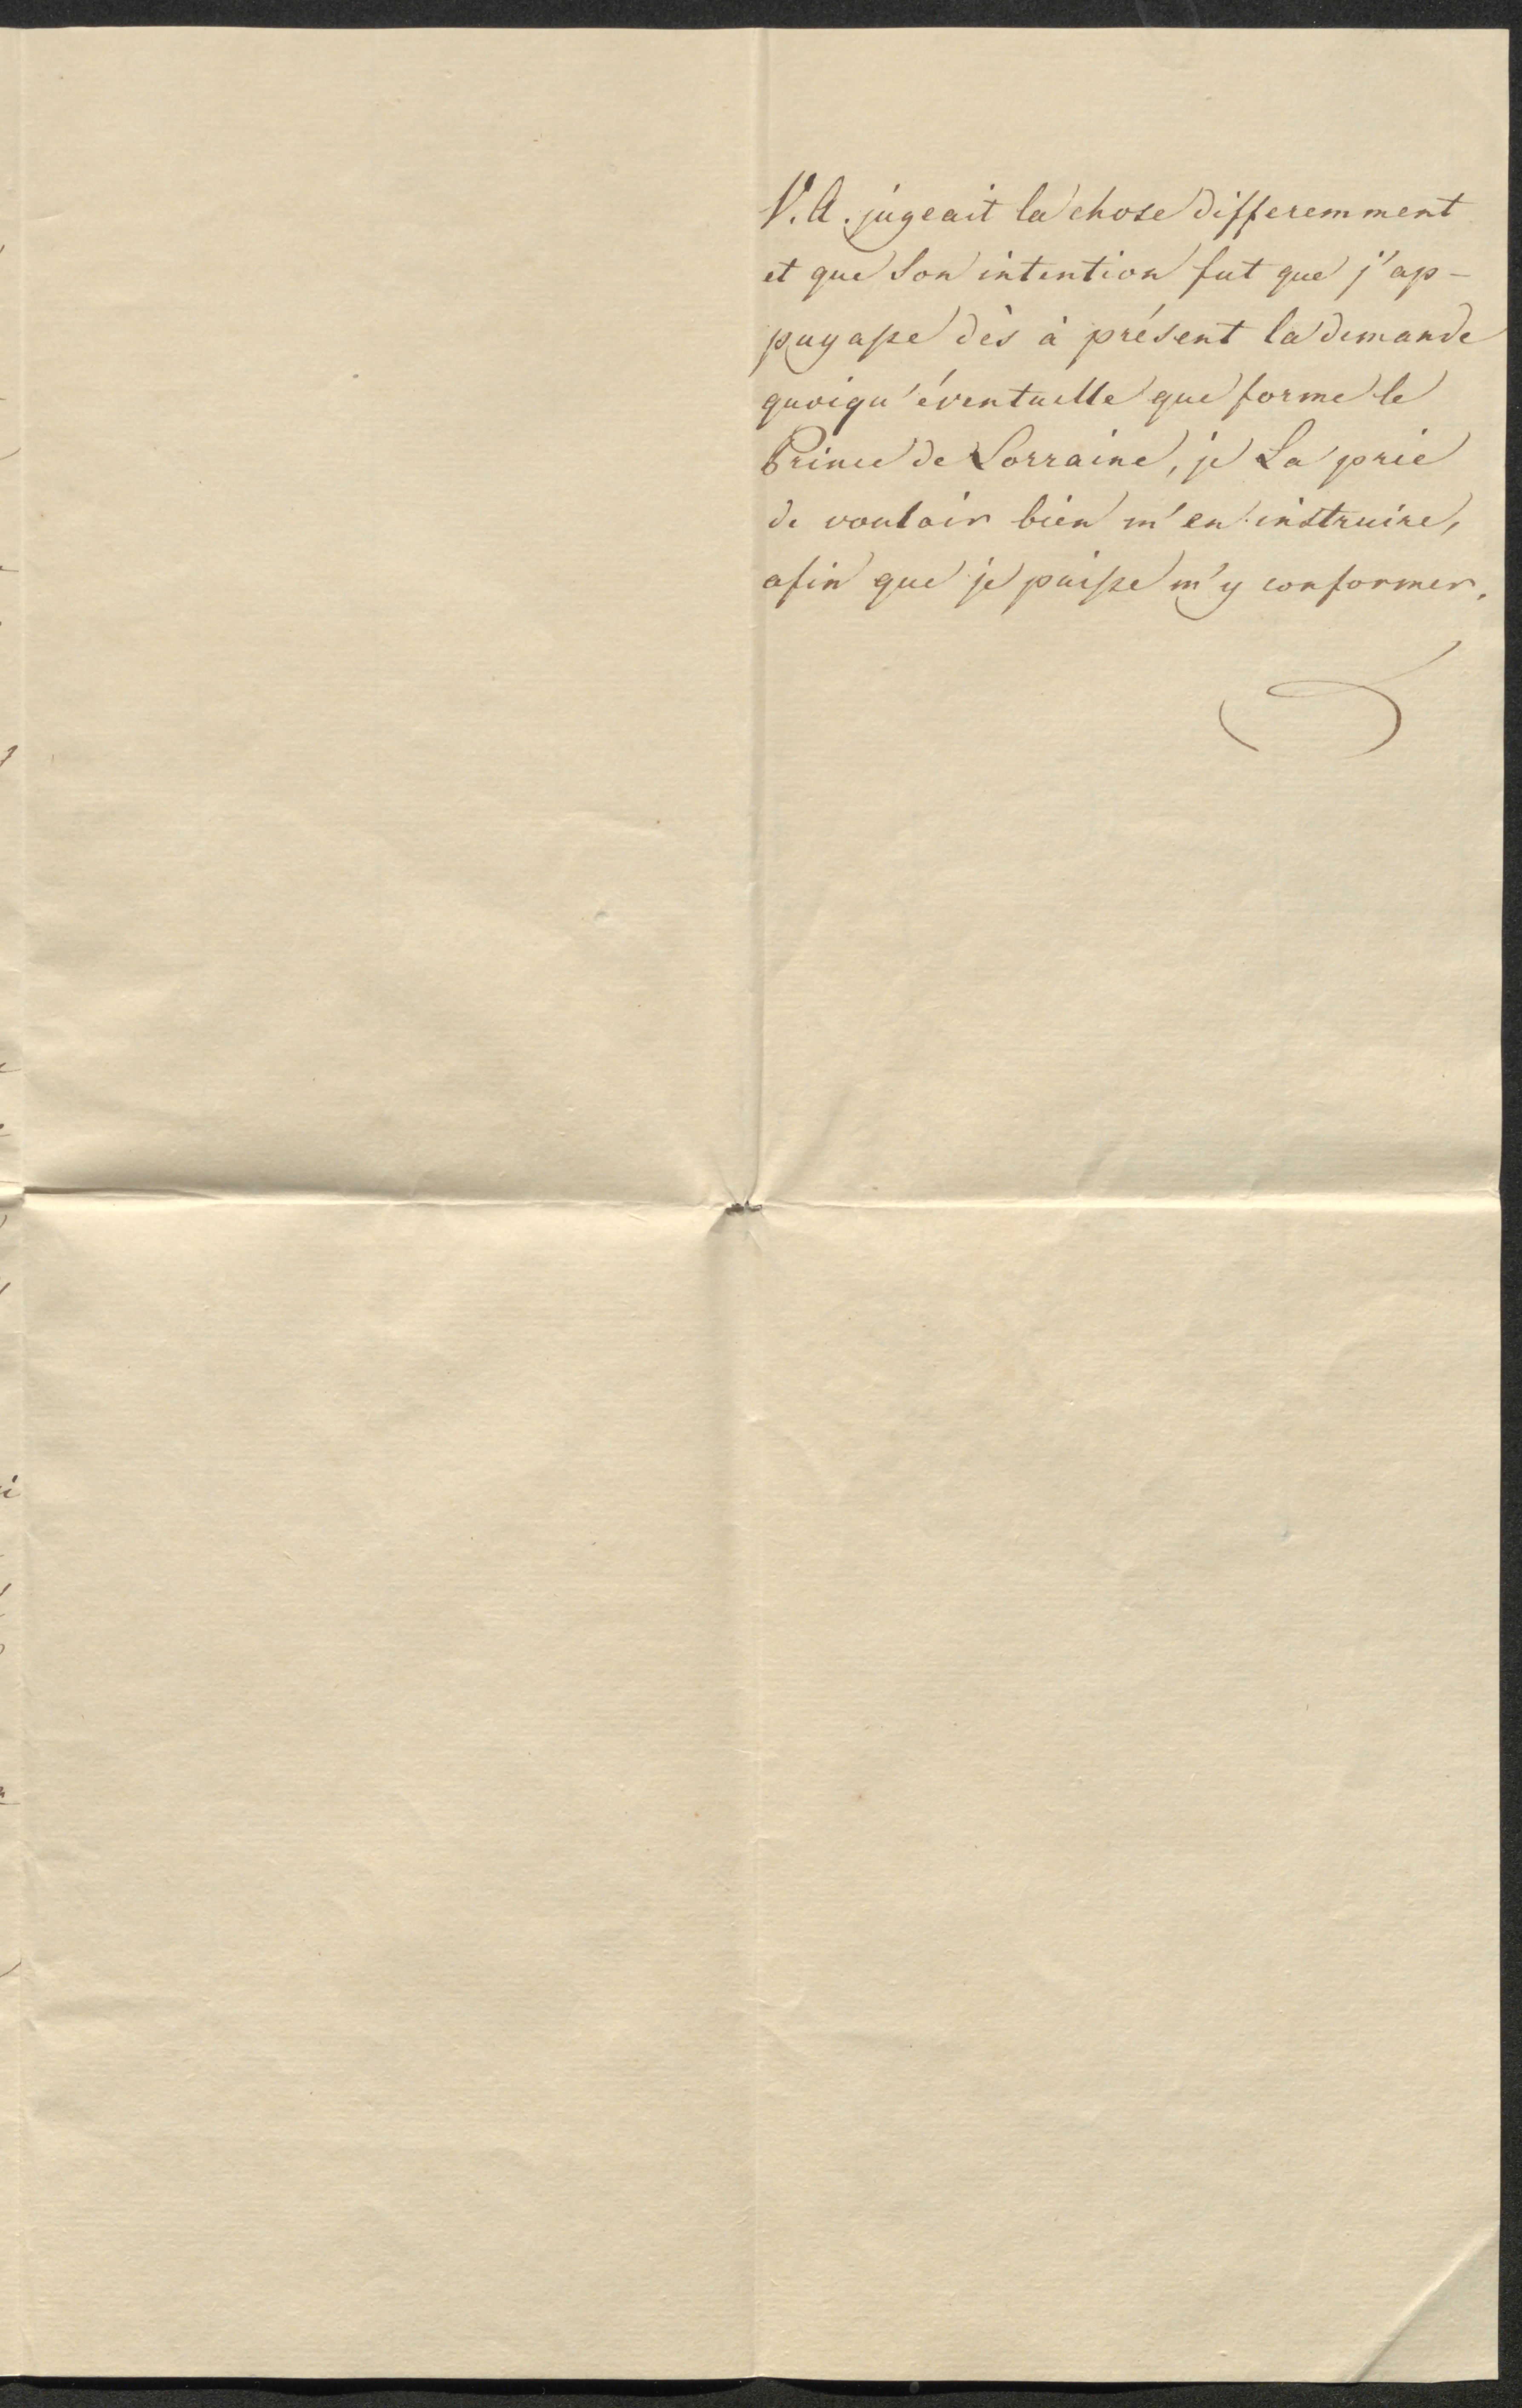 V. A. jugeait la chose differemment
et que Son intention fut que j'ap-
puyasse dès à présent la demande
quoiqu'éventuelle que forme le
Prince de Lorraine, je La prie
de vouloir bien m'en instruire,
afin que je puisse m'y conformer.